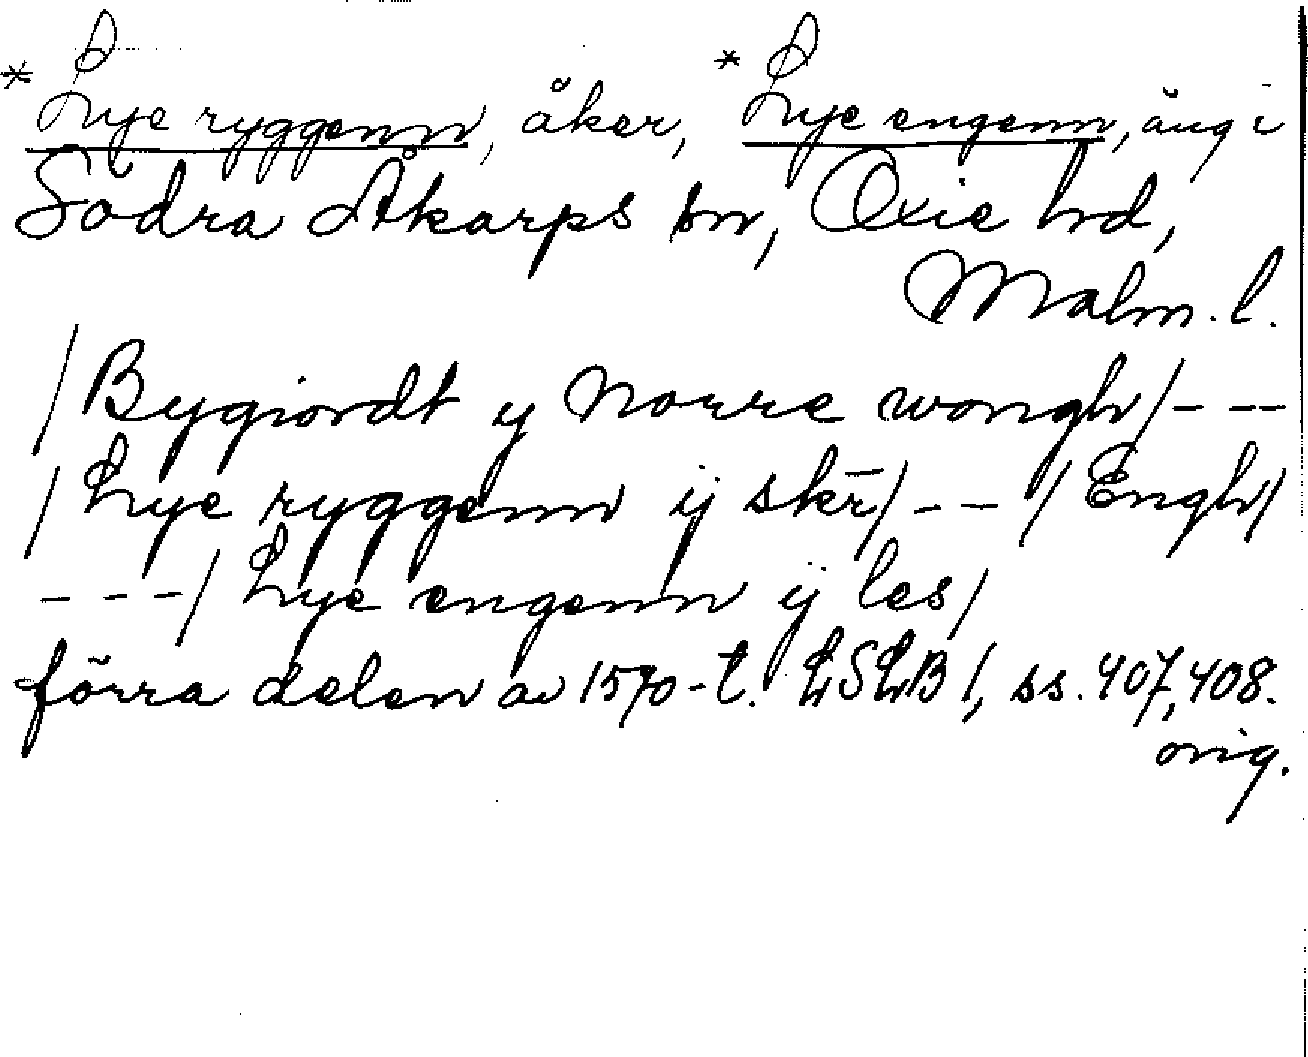 * Lye ryggenn, åker, * Lye engenn, äng i
Södra Åkarps sn, Oxie hd,
Malm. l.
/Bygiordt y Norre wongh/ - - -
/Lye ryggenn ij skr̄/ - - /Engh/
- - - /Lye engenn ij les/
förra delen av 1570-t. LSLB I, ss. 407, 408.
orig.